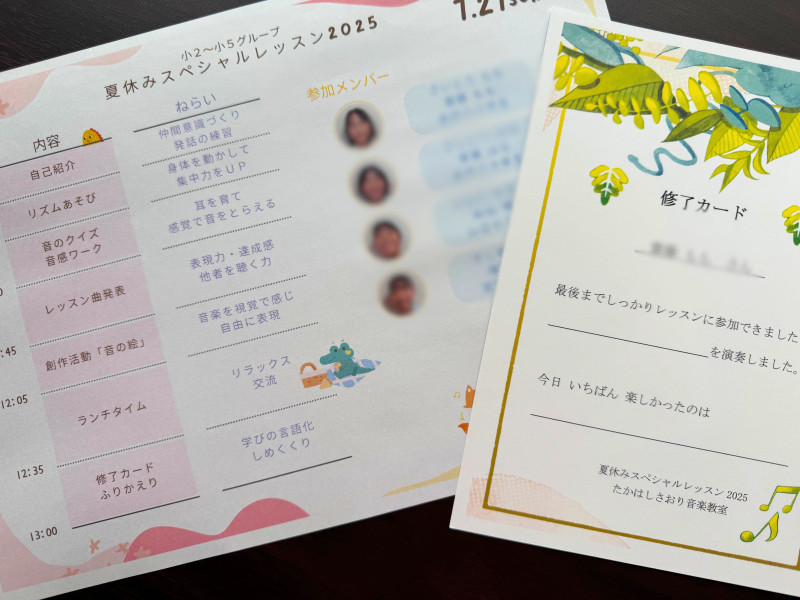 小2～小5グループ
夏休みスペシャルレッスン2025
7.21
内容
ねらい
参加メンバー
自己紹介
仲間意識づくり
発話の練習
リズムあそび
身体を動かして
集中力をUP
音のクイズ
音感ワーク
耳を育て
感覚で音をとらえる
レッスン曲発表
表現力・達成感
他者を聴く力
:45
創作活動「音の絵」
音楽を視覚で感じ
自由に表現
12:05
ランチタイム
リラックス
交流
12:35
修了カード
ふりかえり
学びの言語化
しめくくり
13:00
修了カード
最後までしっかりレッスンに参加できました
を演奏しました。
今日 いちばん 楽しかったのは
夏休みスペシャルレッスン2025
たかはしさおり音楽教室